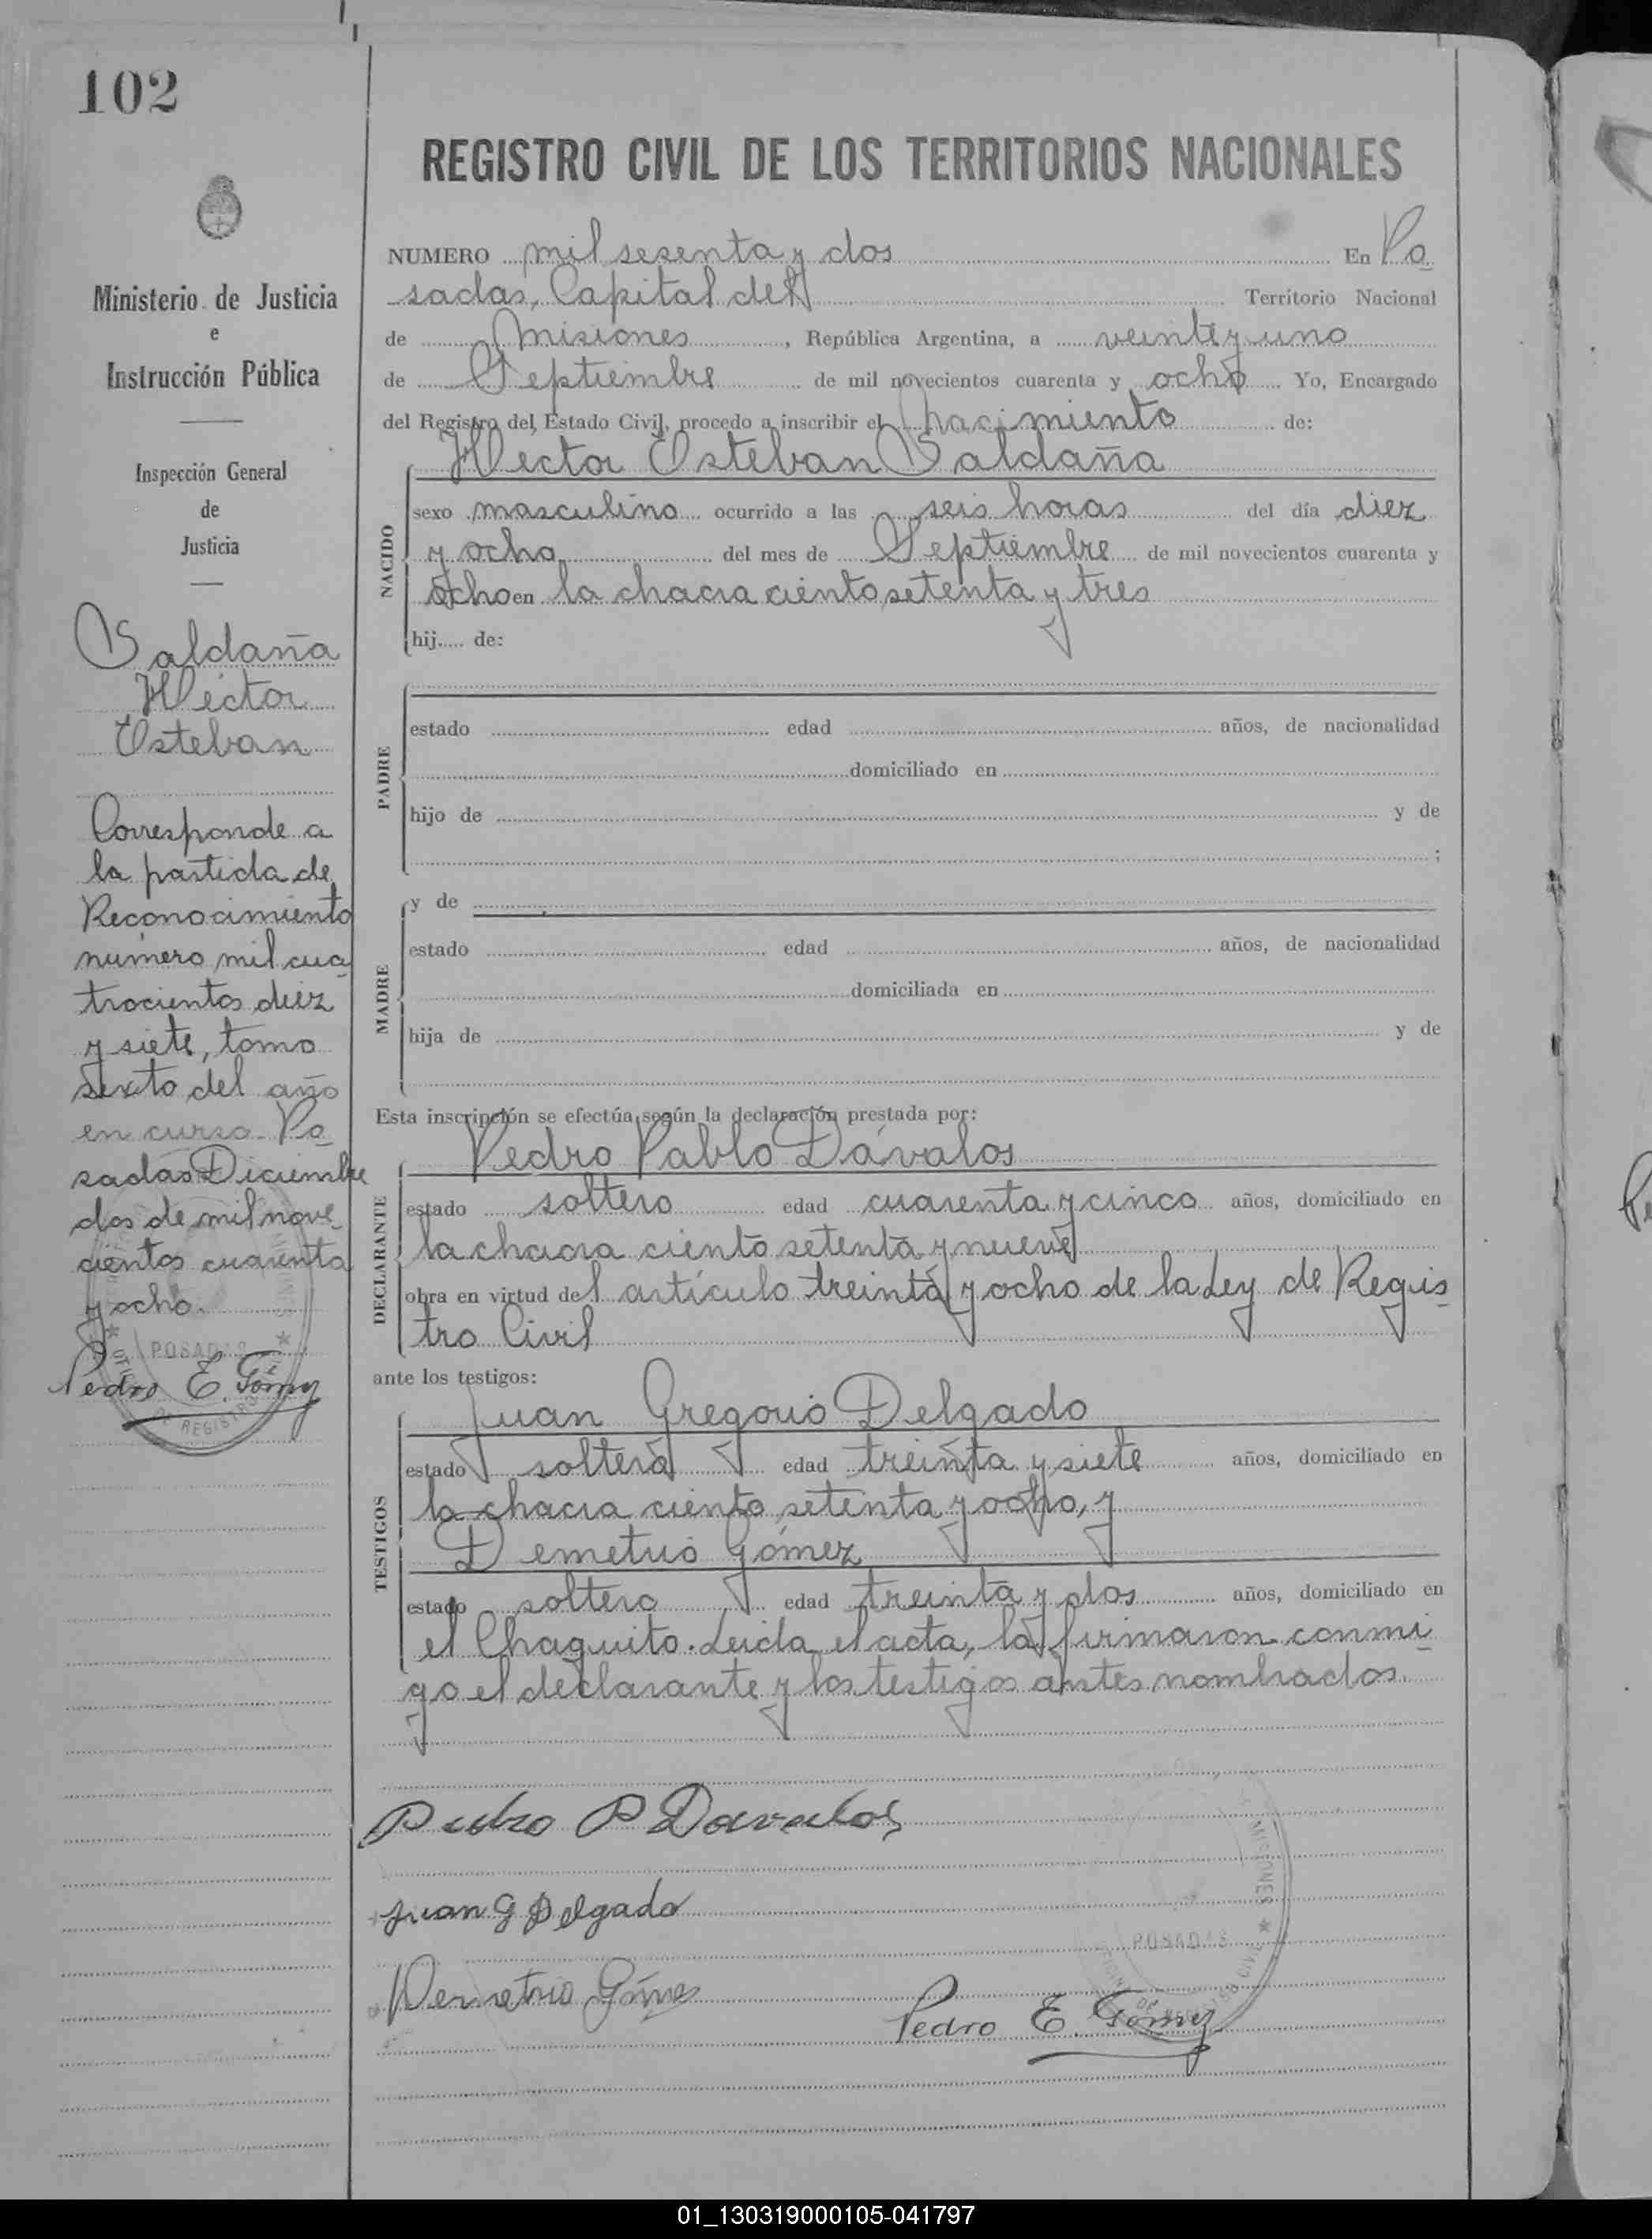 102
Ministerio de Justicia
e
Instrucción Pública
Inspección General
de
Justicia
Saldaña
Héctor
Esteban
Corresponde a
la partida de
Reconocimiento
número mil cua
trocientos diez
y siete, tomo
sexto del año
en curso. Po
sadas Diciembre
dos de mil nove
cientos cuarenta
y ocho.
POSADAS
Pedro E. Gómez
REGISTRO CIVIL DE LOS TERRITORIOS NACIONALES
NUMERO mil sesenta y dos En Po
sadas, Capital del Territorio Nacional
de Misiones, República Argentina, a veintey uno
de Septiembre de mil novecientos cuarenta y ocho Yo, Encargado
del Registro del Estado Civil, procedo a inscribir el nacimiento de:
Hector Esteban Saldaña
NACIDO
sexo masculino ocurrido a las seis horas del día diez
y ocho del mes de Septiembre de mil novecientos cuarenta y
ocho en la chacra ciento setenta y tres
hij..... de:
PADRE
estado edad años, de nacionalidad
domiciliado en
hijo de y de
;
MADRE
y de
estado edad años, de nacionalidad
domiciliada en
hija de y de
Esta inscripción se efectúa según la declaración prestada por:
Pedro Pablo Dávalos
DECLARANTE
estado soltero edad cuarenta y cinco años, domiciliado en
la chacra ciento setenta y nueve
obra en virtud del artículo treinta y ocho de la Ley de Regis
tro Civil
ante los testigos:
Juan Gregorio Delgado
TESTIGOS
estado soltero edad treinta y siete años, domiciliado en
la chacra ciento setenta y ocho, y
Demetrio Gómez
estado soltero edad treinta y dos años, domiciliado en
el Chaquito. Leida el acta, la firmaron conmi
go el declarante y los testigos antes nombrados.
Pedro P Davalos
Juan G Delgado
Demetrio Gómes
MISIONES
POSADAS
Pedro E. Gómez
01_130319000105-041797